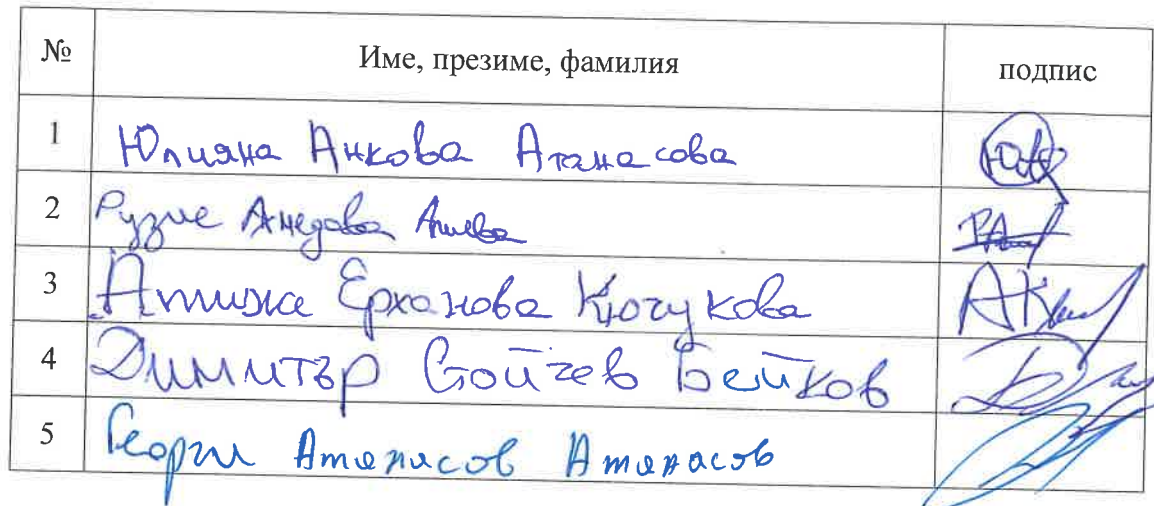 № Име, презиме, фамилия подпис
1 Юлияна Анкова Атанасова
2 Рузие Ахмедова Алиева
3 Атиже Ерханова Кючукова
4 Димитър Стойчев Бейков
5 Георги Атанасов Атанасов